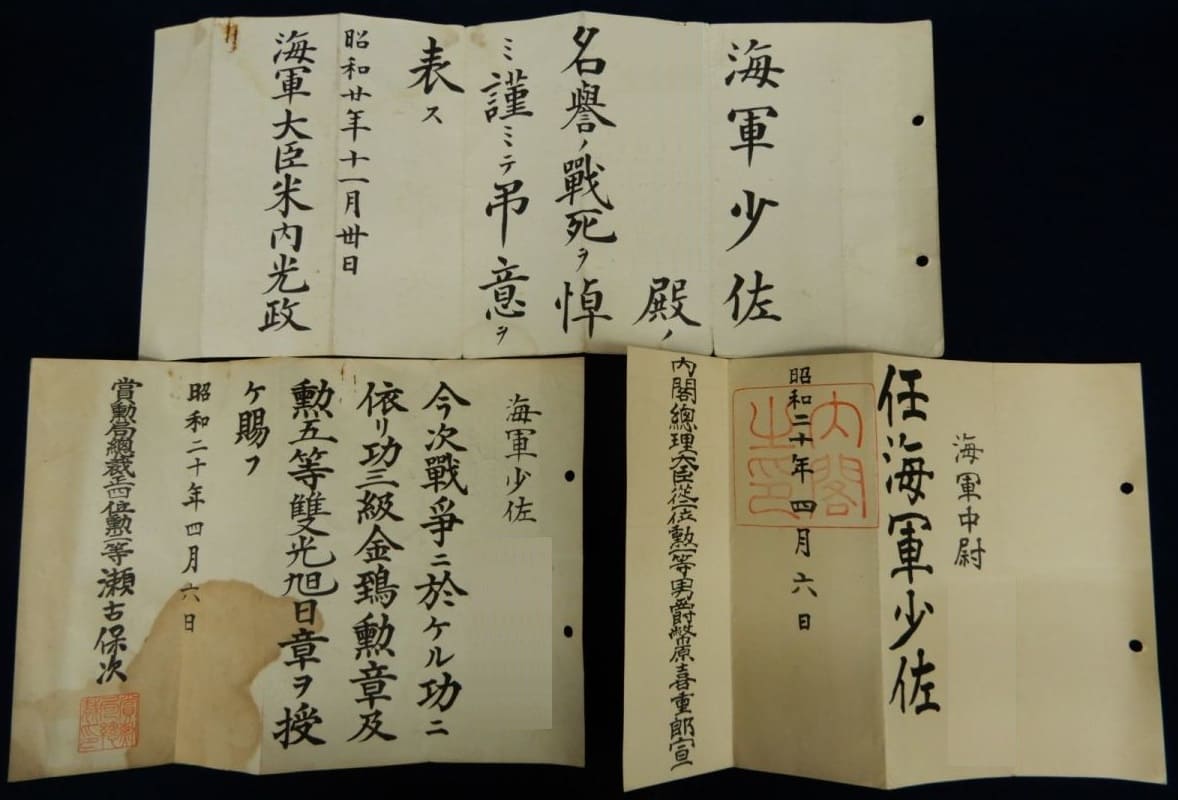 海軍少佐
殿ノ
名譽ノ戰死ヲ悼
ミ謹ミテ弔意ヲ
表ス
昭和廿年十一月丗日
海軍大臣米内光政
海軍少佐
今次戰爭ニ於ケル功ニ
依リ功三級金鵄勲章及
勲五等雙光旭日章ヲ授
ケ賜フ
昭和二十年四月六日
賞勲局總裁正四位勲一等瀬古保次
海軍中尉
任海軍少佐
昭和二十年四月六日
内閣之印
内閣總理大臣從一位勲一等男爵幣原喜重郎宣